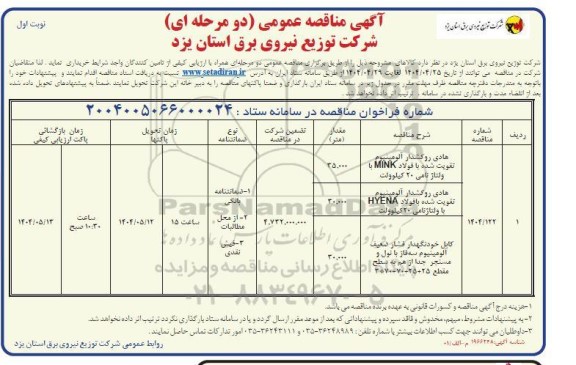 نوبت اول
آگهی مناقصه عمومی (دو مرحله ای)
شرکت توزیع نیروی برق استان یزد
شرکت توزیع نیروی برق استان یزد
شرکت توزیع نیروی برق استان یزد در نظر دارد کالاهای مشروحه ذیل را از طریق برگزاری مناقصه عمومی دو مرحله‌ای همراه با ارزیابی کیفی از تامین کنندگان واجد شرایط خریداری نماید . لذا متقاضیان
شرکت در مناقصه می توانند از تاریخ ۱۴۰۴/۰۴/۲۵ لغایت ۱۴۰۴/۰۴/۲۹ از طریق سامانه ستاد ایران به آدرس www.setadiran.ir نسبت به دریافت اسناد مناقصه اقدام نمایند و پیشنهادات خود را
باتوجه به مندرجات دفترچه مناقصه ظرف مهلت مقرر در جدول زیر در سامانه ستاد ایران بارگذاری و ضمنا پاکتهای مناقصه را به دبیر خانه این شرکت تحویل نمایند. ضمنا به پیشنهادهای تحویل داده شده
بعد از انقضاء مدت و بارگذاری نشده در سامانه ترتیب اثر داده نخواهد شد.
شماره فراخوان مناقصه در سامانه ستاد : ۲۰۰۴۰۰۵۰۶۶۰۰۰۰۲۴
ردیف
شماره مناقصه
شرح مناقصه
مقدار (متر)
تضمین شرکت در مناقصه
نوع ضمانتنامه
زمان تحویل پاکتها
زمان بازگشائی پاکت ارزیابی کیفی
۱
۱۴۰۴/۱۲۲
هادی روکشدار آلومینیوم
تقویت شده با فولاد MINK با
ولتاژ نامی ۲۰ کیلوولت
۳۵,۰۰۰
هادی روکشدار آلومینیوم
تقویت شده بافولاد HYENA
با ولتاژنامی ۲۰کیلوولت
۳۰,۰۰۰
کابل خودنگهدار فشار ضعیف
آلومینیوم سه‌فاز با نول و
مسنجر جدا از هم به سطح
مقطع ۲۵+۲۵+۷۰+۷۰*۳
۳۰,۰۰۰
۴,۷۳۲,۰۰۰,۰۰۰
۱-ضمانتنامه بانکی
۲- از محل مطالبات
۳-فیش نقدی
ساعت ۱۵ ۱۴۰۴/۰۵/۱۲
ساعت ۱۰:۳۰ صبح ۱۴۰۴/۰۵/۱۳
ParsNamadData
۰۲۱-۸۸۳۴۹۶۷۰-۵
۱-هزینه درج آگهی مناقصه و کسورات قانونی به عهده برنده مناقصه می باشد.
۲- به پیشنهادات مشروط، مبهم، مخدوش و فاقد سپرده و پیشنهاداتی که بعد از موعد مقرر ارسال گردد و یا در سامانه ستاد بارگذاری نگردد ترتیب اثر داده نخواهد شد.
۳-داوطلبان می توانند جهت کسب اطلاعات بیشتر با شماره تلفن : ۳۶۲۴۸۹۸۹-۰۳۵ و ۳۶۲۴۳۱۱۱-۰۳۵ امور تدارکات تماس حاصل نمایند.
شناسه آگهی: ۱۹۶۶۲۳۶ م-الف: ۰۸
روابط عمومی شرکت توزیع نیروی برق استان یزد